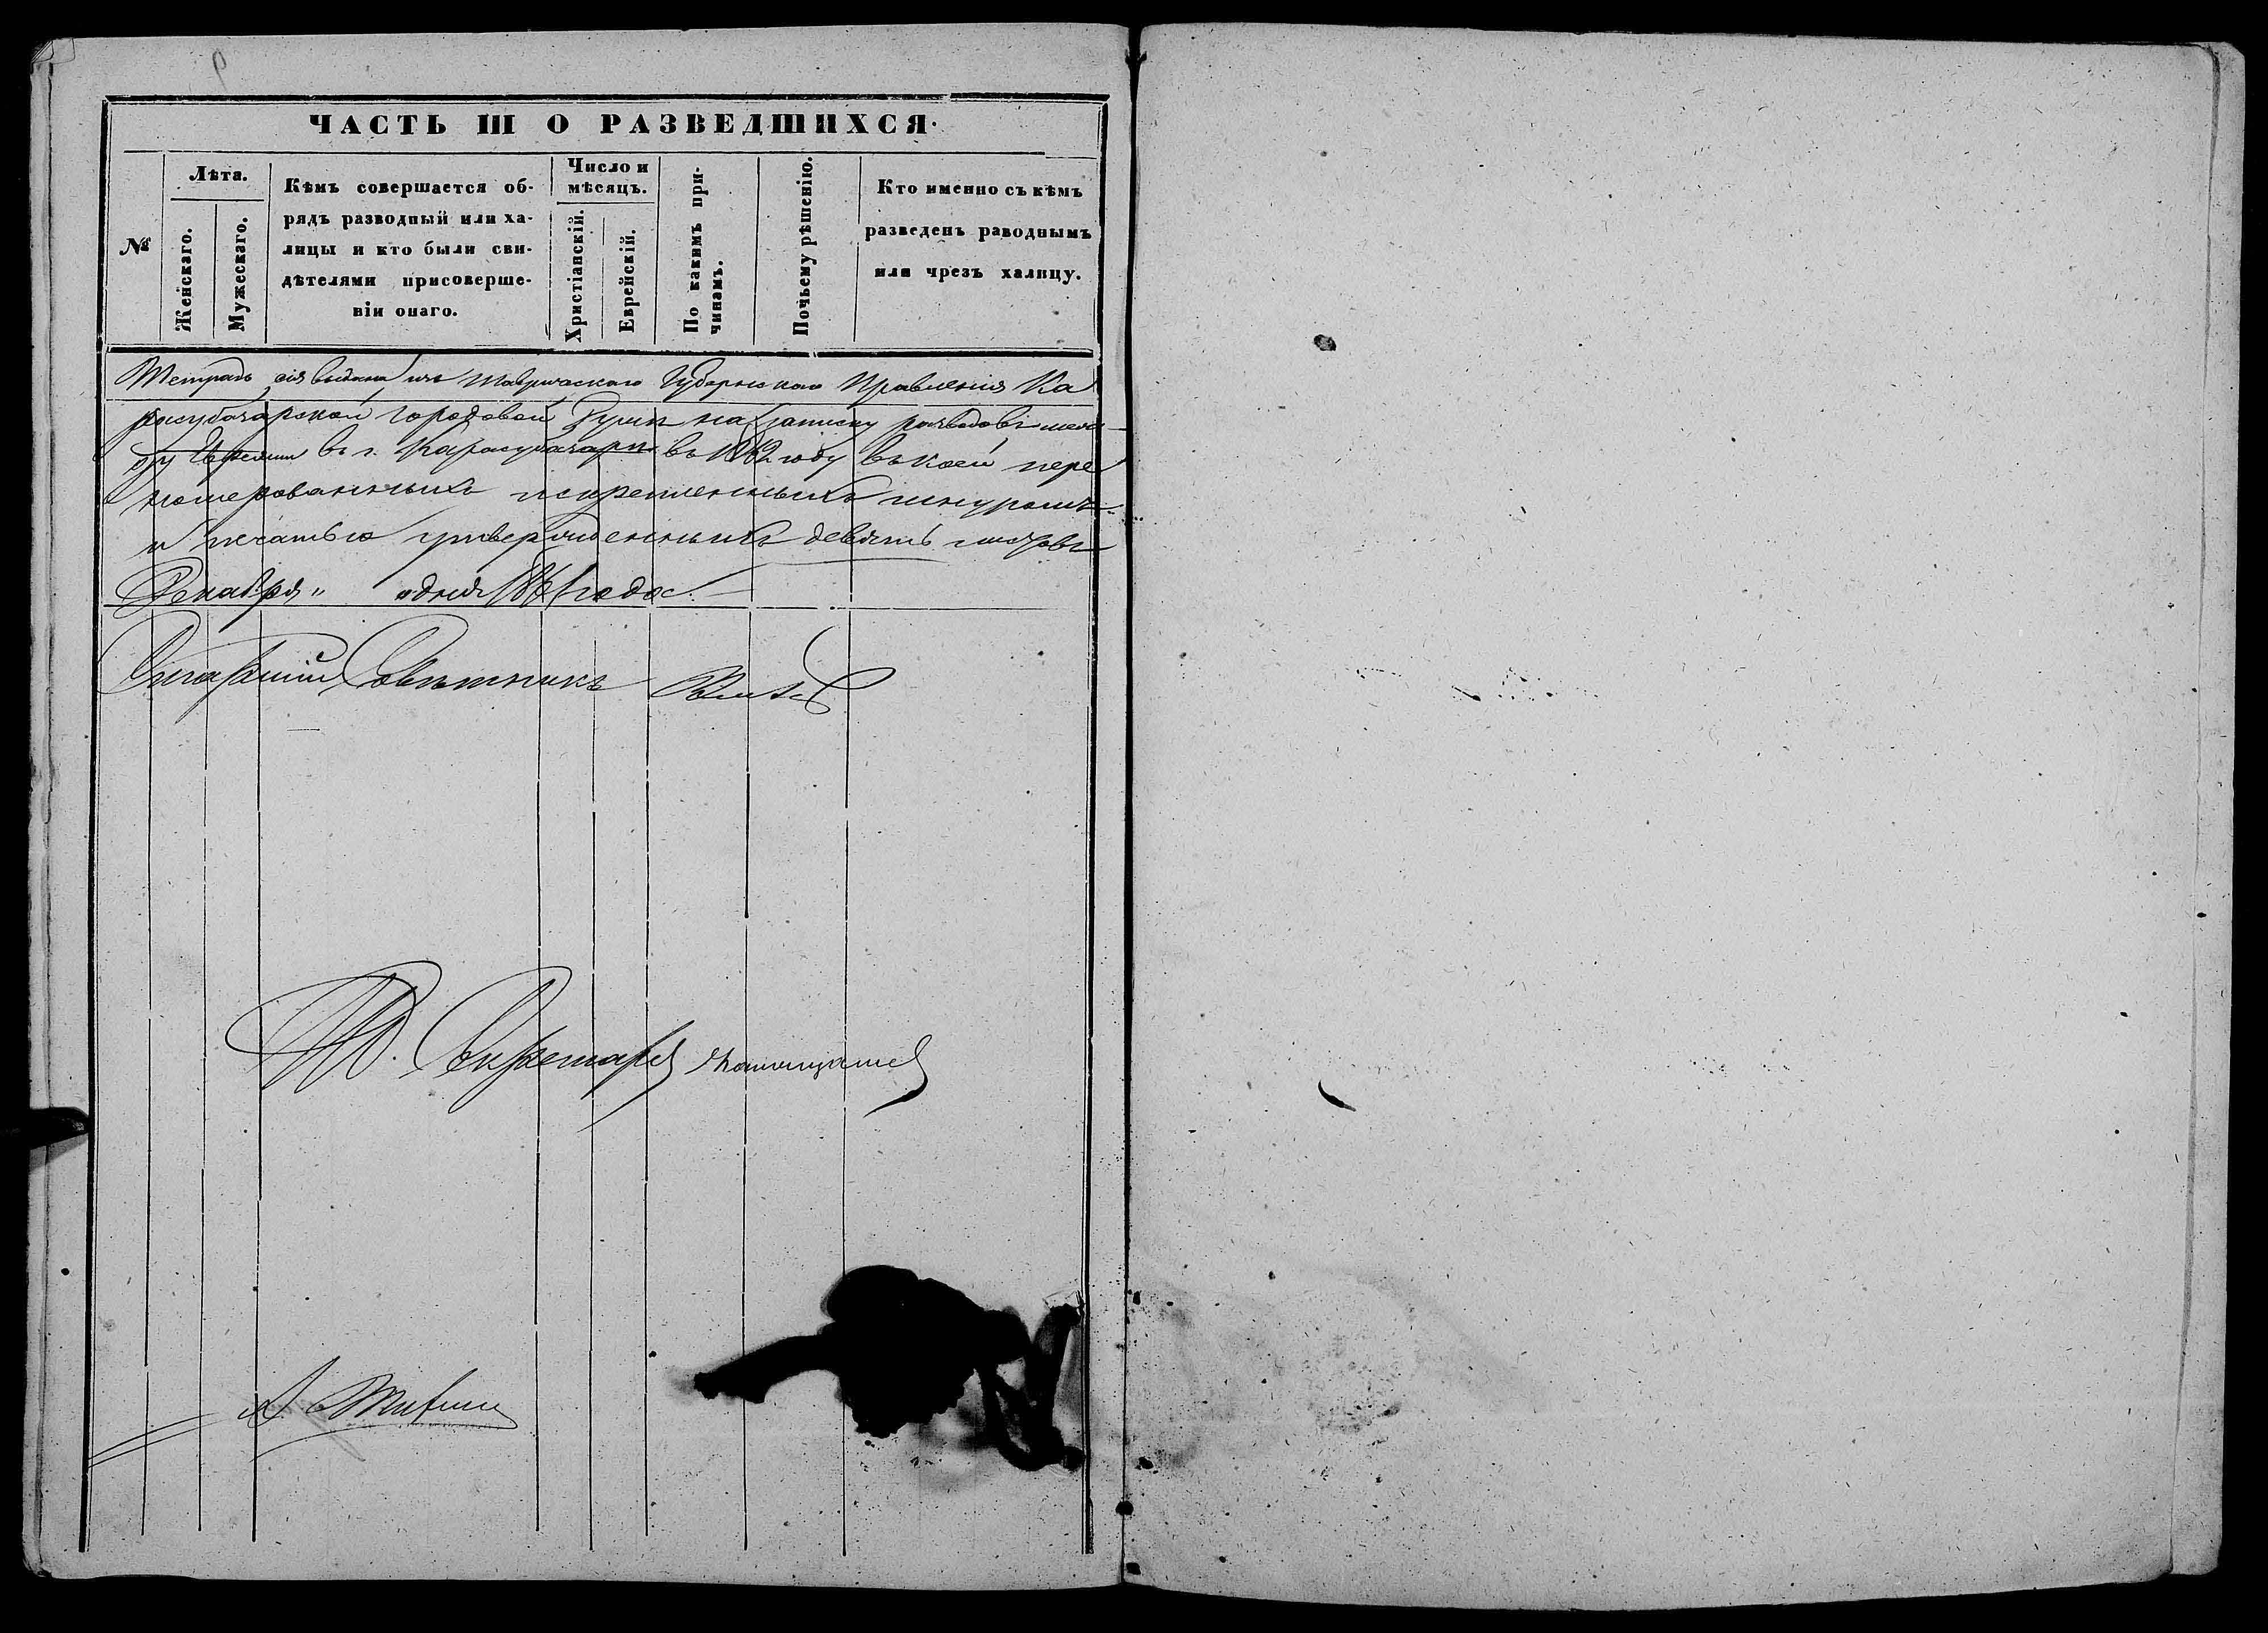 9
ЧАСТЬ III О РАЗВЕДШИХСЯ.
№
Лѣта.
Женскаго.
Мужескаго.
Кѣмъ совершается об-
рядъ разводный или ха-
лицы и кто были сви-
дѣтелями присоверше-
ніи онаго.
Число и
мѣсяцъ.
Христіанскій.
Еврейскій.
По какимъ при-
чинамъ.
Почьему рѣшенію.
Кто именно съ кѣмъ
разведенъ раводнымъ
или чрезъ халицу.
Тетрадь сія выдана изъ Таврическаго Губернскаго Правленія Ка
расубазарской городовой Думѣ на записку разводовъ меж
ду Евреями въ г. Карасубазарѣ въ 1862 году въ коей пере
номерованныхъ искрепленныхъ шнуромъ
и печатью утвержденныхъ девять листовъ
Декабря „ „ дня 1861 года.
Старшій Совѣтникъ
И.Д. Секретаря